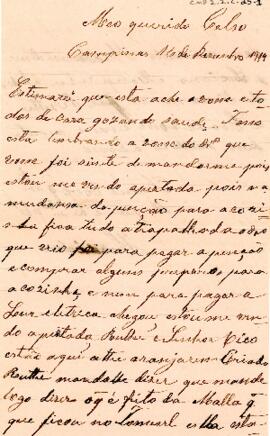 CMP 2.2.2.
Meo querido Celso
Campinas 16 de Dezembro 1914
Estimarei que esta ache a vonce e to
dos de casa gozando saude,
esta lembrando a vonce do que
vonce foi siente de mandarma pois
estou me vendo apertada pois na
mudansa da penção para a cozi
nha fica tudo atrapalhado o do
que veio foi para pagar a penção
e comprar alguns para
a cozinha, e nem para pagar a
Lour eletrica chegou estou me ven
do apertada Ruthe e Senhor Tico
estão aqui athe aranjarem Criado
Ruthe manda dizer que mande
logo dizer oq é feito da Malla q
que ficou no esta